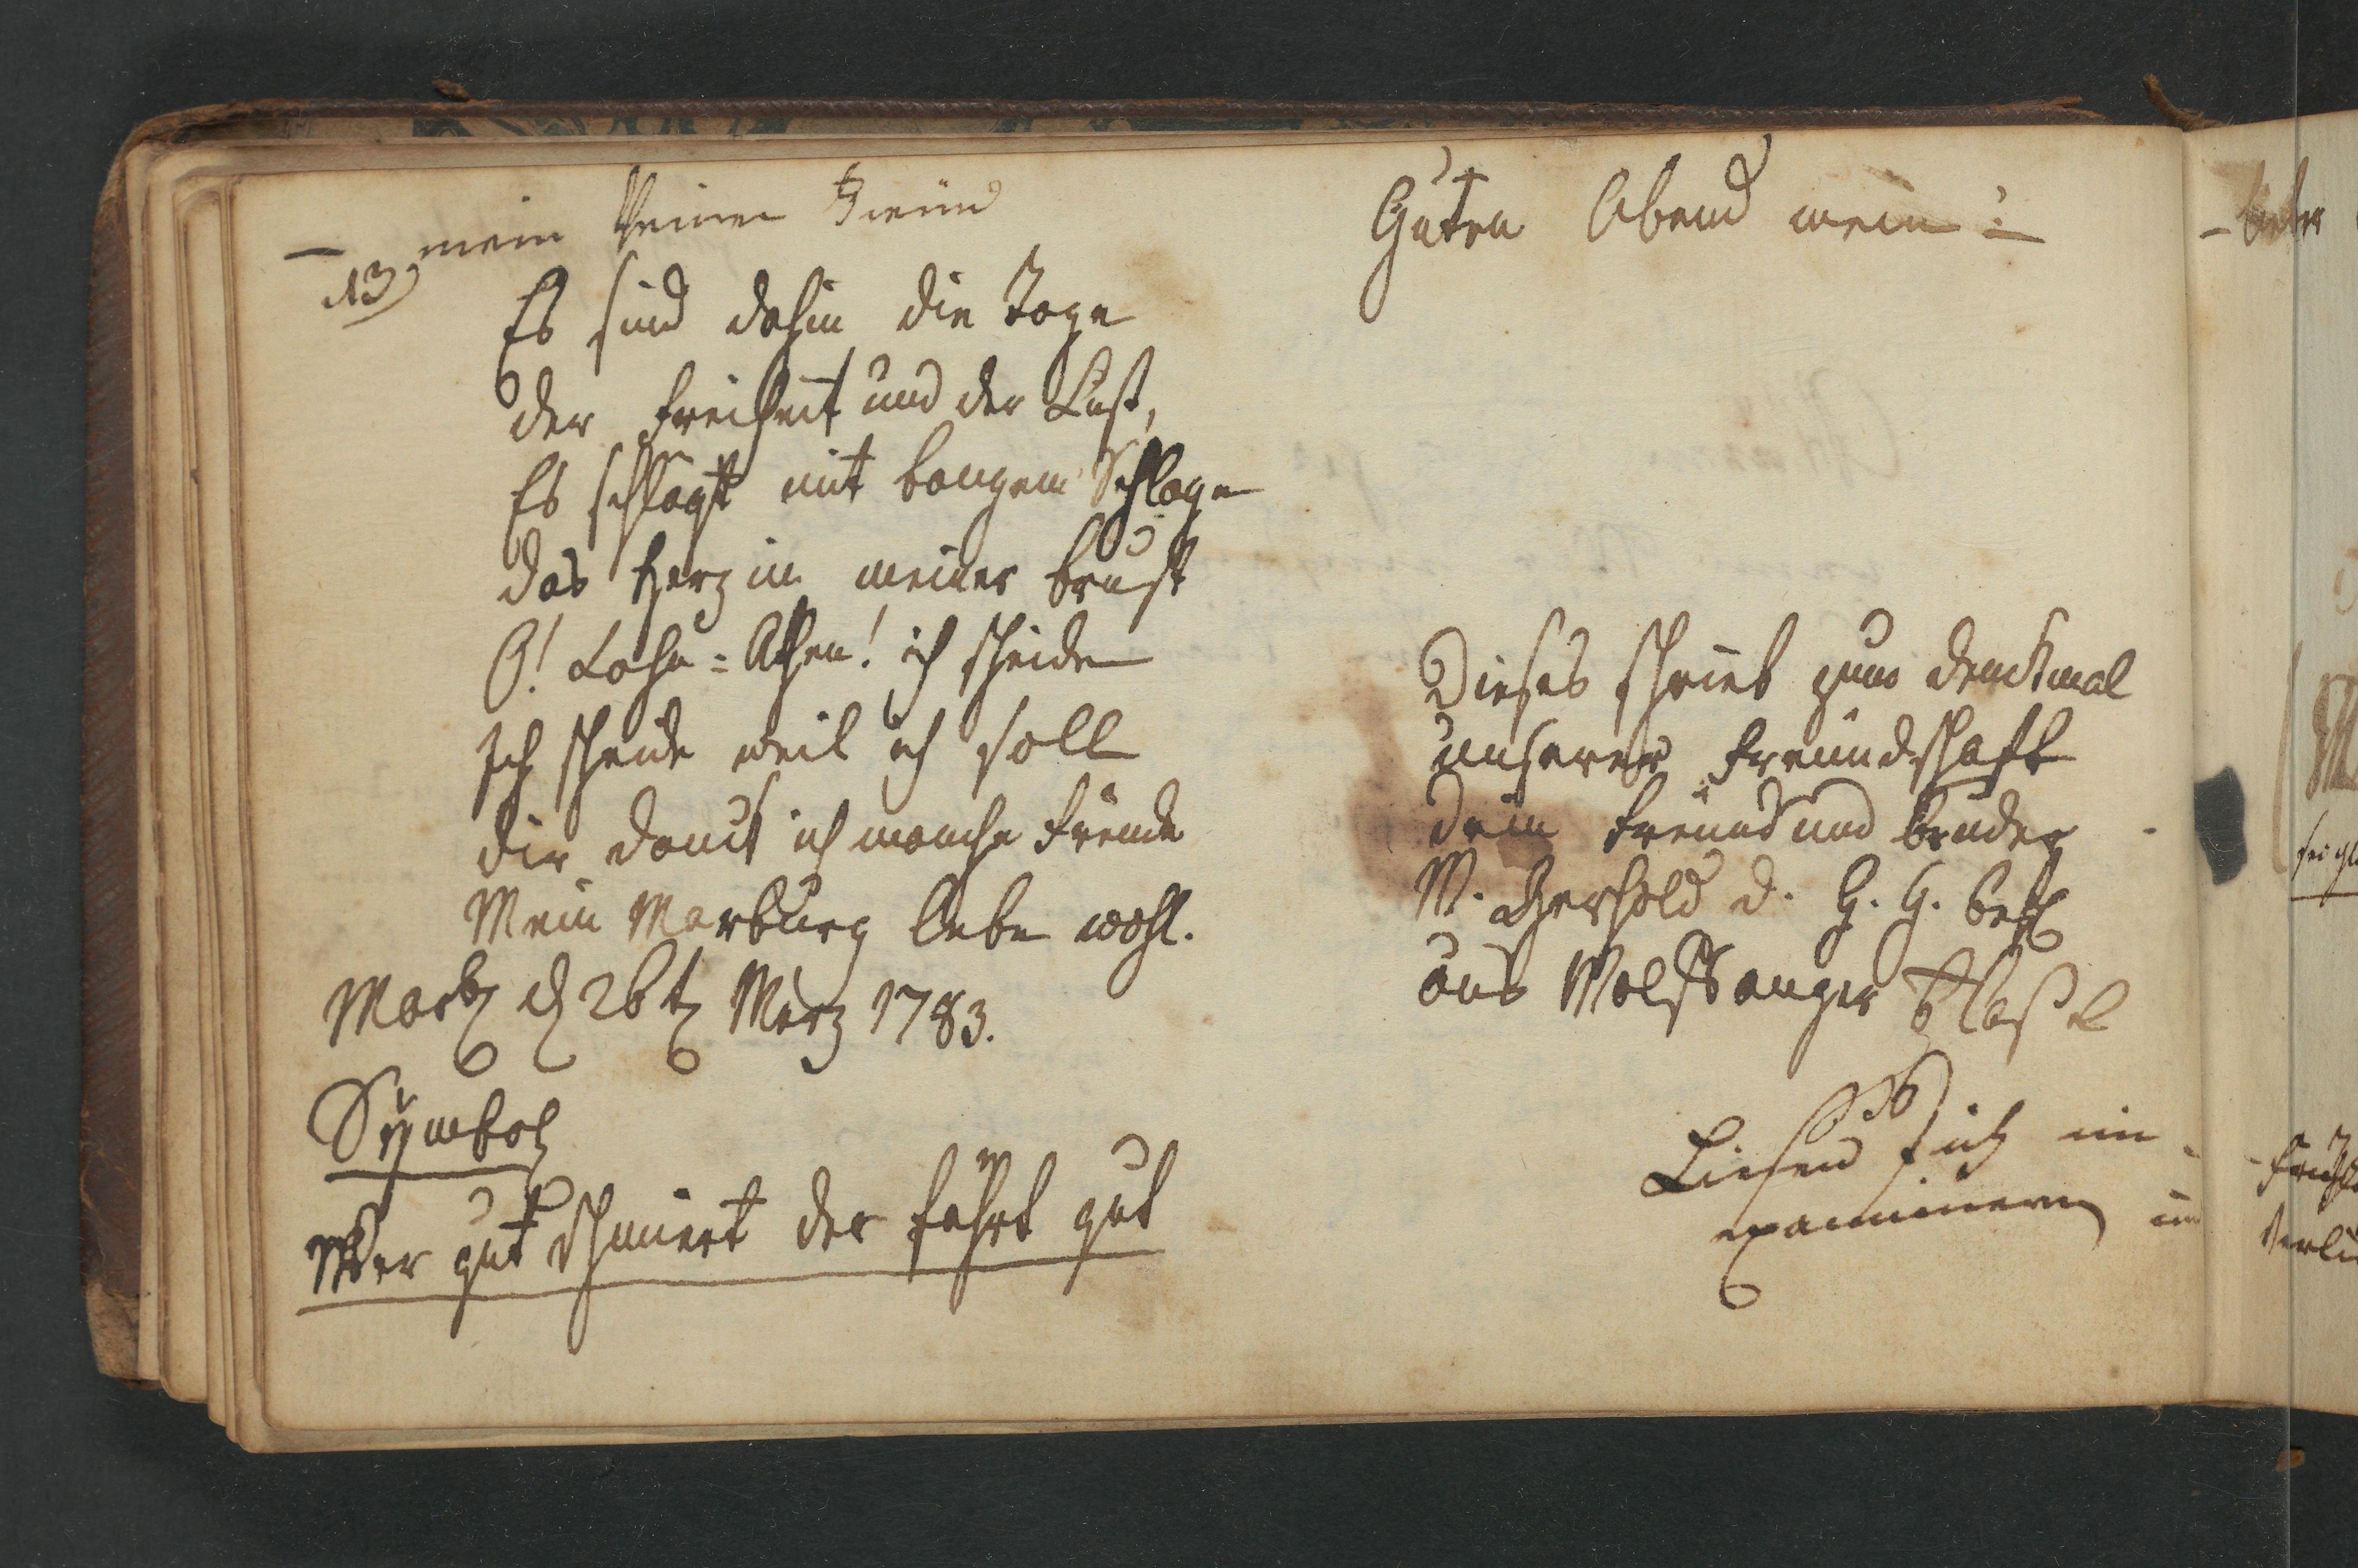 – mein kleiner Freünd
13)
Es sind dahin die Tage
der Freiheit und der Lust,
Es schlägt mit bangem Schlage
das Herz in meiner brust
O! Lahn-Athen! ich scheide
Ich scheide weil ich soll
dir danck ich manche Freude
Mein Marburg lebe wohl.
Marb. d. 26t. Merz 1783.
Symbol.
Wer gut schmiert der fährt gut
Guten Abend mein :
Dieses schrieb zum denckmal
unserer Freündschaft
dein Freünd und bruder
W. Gerhold d. G. G. bef.
aus Wolfsanger
Liesen sich
examiniren